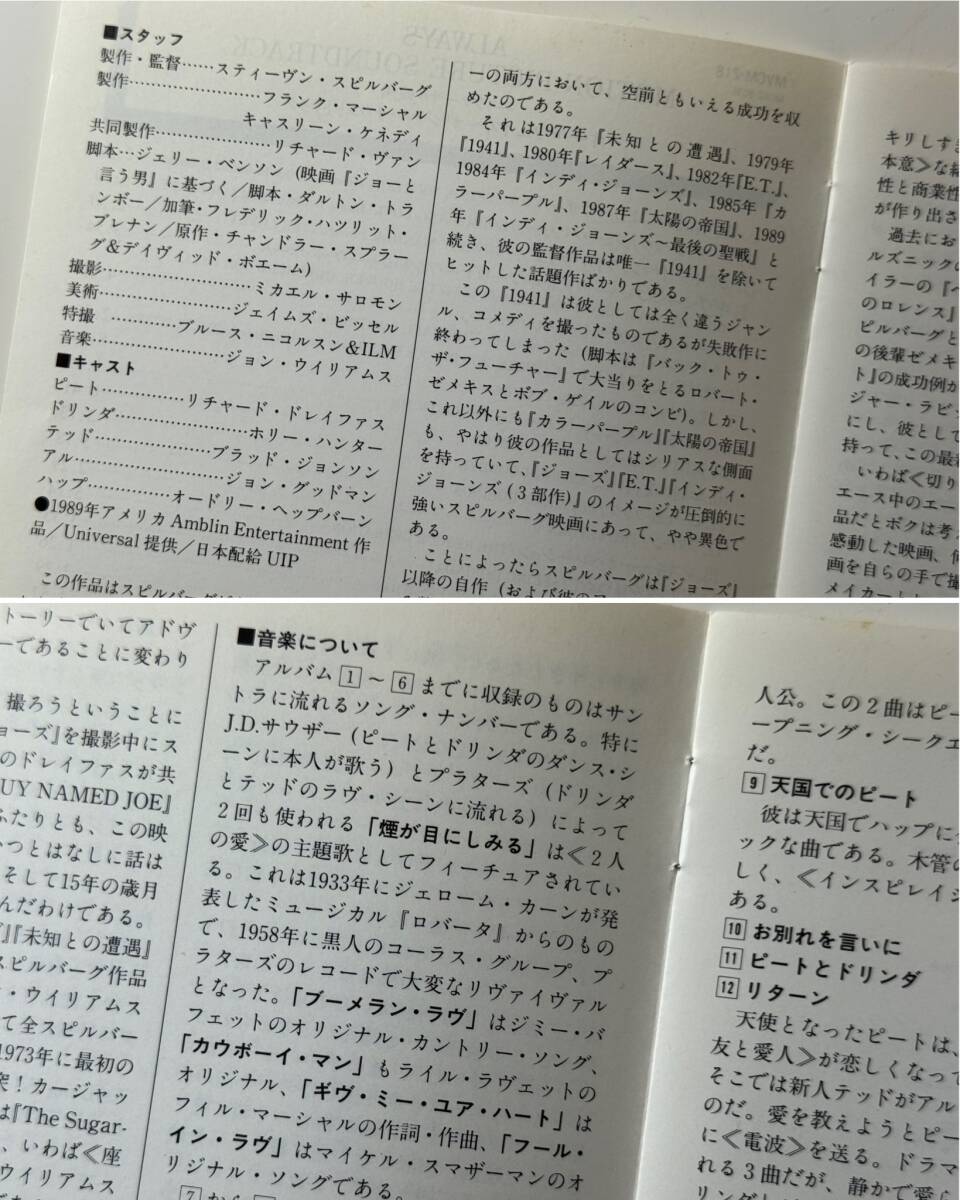 ■スタッフ
製作・監督……スティーヴン・スピルバーグ
製作…………………フランク・マーシャル
キャスリーン・ケネディ
共同製作………………リチャード・ヴァン
脚本…ジェリー・ベンソン(映画『ジョーと
言う男』に基づく/脚本・ダルトン・トラ
ンボー/加筆・フレデリック・ハツリット・
ブレナン/原作・チャンドラー・スプラー
グ&デイヴィッド・ボエーム)
撮影……………………ミカエル・サロモン
美術…………………ジェイムズ・ビッセル
特撮 …………ブルース・ニコルスン&ILM
音楽…………………ジョン・ウイリアムス
■キャスト
ピート………………リチャード・ドレイファス
ドリンダ…………………ホリー・ハンター
テッド………………ブラッド・ジョンソン
アル……………………ジョン・グッドマン
ハップ……………オードリー・ヘップバーン
●1989年アメリカ Amblin Entertainment 作
品/Universal 提供/日本配給 UIP
ーの両方において、空前ともいえる成功を収
めたのである。
それは1977年『未知との遭遇』、1979年
『1941』、1980年『レイダース』、1982年『E.T.』、
1984年『インディ・ジョーンズ』、1985年『カ
ラーパープル』、1987年『太陽の帝国』、1989
年『インディ・ジョーンズ〜最後の聖戦』と
続き、彼の監督作品は唯一『1941』を除いて
ヒットした話題作ばかりである。
この『1941』は彼としては全く違うジャン
ル、コメディを撮ったものであるが失敗作に
終わってしまった(脚本は『バック・トゥ・
ザ・フューチャー』で大当りをとるロバート・
ゼメキスとボブ・ゲイルのコンビ)。しかし、
これ以外にも『カラーパープル』『太陽の帝国』
も、やはり彼の作品としてはシリアスな側面
を持っていて、『ジョーズ』『E.T.』『インディ・
ジョーンズ(3部作)』のイメージが圧倒的に
強いスピルバーグ映画にあって、やや異色で
ある。
ことによったらスピルバーグは『ジョーズ』
以降の自作(および彼の
キリしすぎ
本意≫な結
性と商業性
が作り出さ
過去にお
ルズニックの
イラーの『
のロレンス』
ピルバーグと
の後輩ゼメキ
ト』の成功例が
ジャー・ラビッ
にし、彼として
持って、この最
いわば≪切り
エース中のエー
品だとボクは考え
感動した映画、
画を自らの手で撮
メイカーとし
トーリーでいてアドヴ
ーであることに変わり
撮ろうということに
ョーズ』を撮影中にス
のドレイファスが共
UY NAMED JOE』
ふたりとも、この映
いつとはなしに話は
そして15年の歳月
んだわけである。
』『未知との遭遇』
スピルバーグ作品
・ウイリアムス
て全スピルバー
1973年に最初の
突!カージャッ
は『The Sugar-
、いわば≪座
ウイリアムス
■音楽について
アルバム1〜6までに収録のものはサン
トラに流れるソング・ナンバーである。特に
J.D.サウザー(ピートとドリンダのダンス・シ
ーンに本人が歌う)とプラターズ(ドリンダ
とテッドのラヴ・シーンに流れる)によって
2回も使われる「煙が目にしみる」は≪2人
の愛≫の主題歌としてフィーチュアされてい
る。これは1933年にジェローム・カーンが発
表したミュージカル『ロバータ』からのもの
で、1958年に黒人のコーラス・グループ、プ
ラターズのレコードで大変なリヴァイヴァル
となった。「ブーメラン・ラヴ」はジミー・バ
フェットのオリジナル・カントリー・ソング、
「カウボーイ・マン」もライル・ラヴェットの
オリジナル、「ギヴ・ミー・ユア・ハート」は
フィル・マーシャルの作詞・作曲、「フール・
イン・ラヴ」はマイケル・スマザーマンのオ
リジナル・ソングである。
7から
人公。この2曲はピー
ープニング・シークエ
だ。
9 天国でのピート
彼は天国でハップに
ックな曲である。木管の
しく、≪インスピレイシ
ある。
10 お別れを言いに
11 ピートとドリンダ
12 リターン
天使となったピートは、
友と愛人≫が恋しくなって
そこでは新人テッドがアル
のだ。愛を教えようとピー
に≪電波≫を送る。ドラマ
れる3曲だが、静かで愛ら